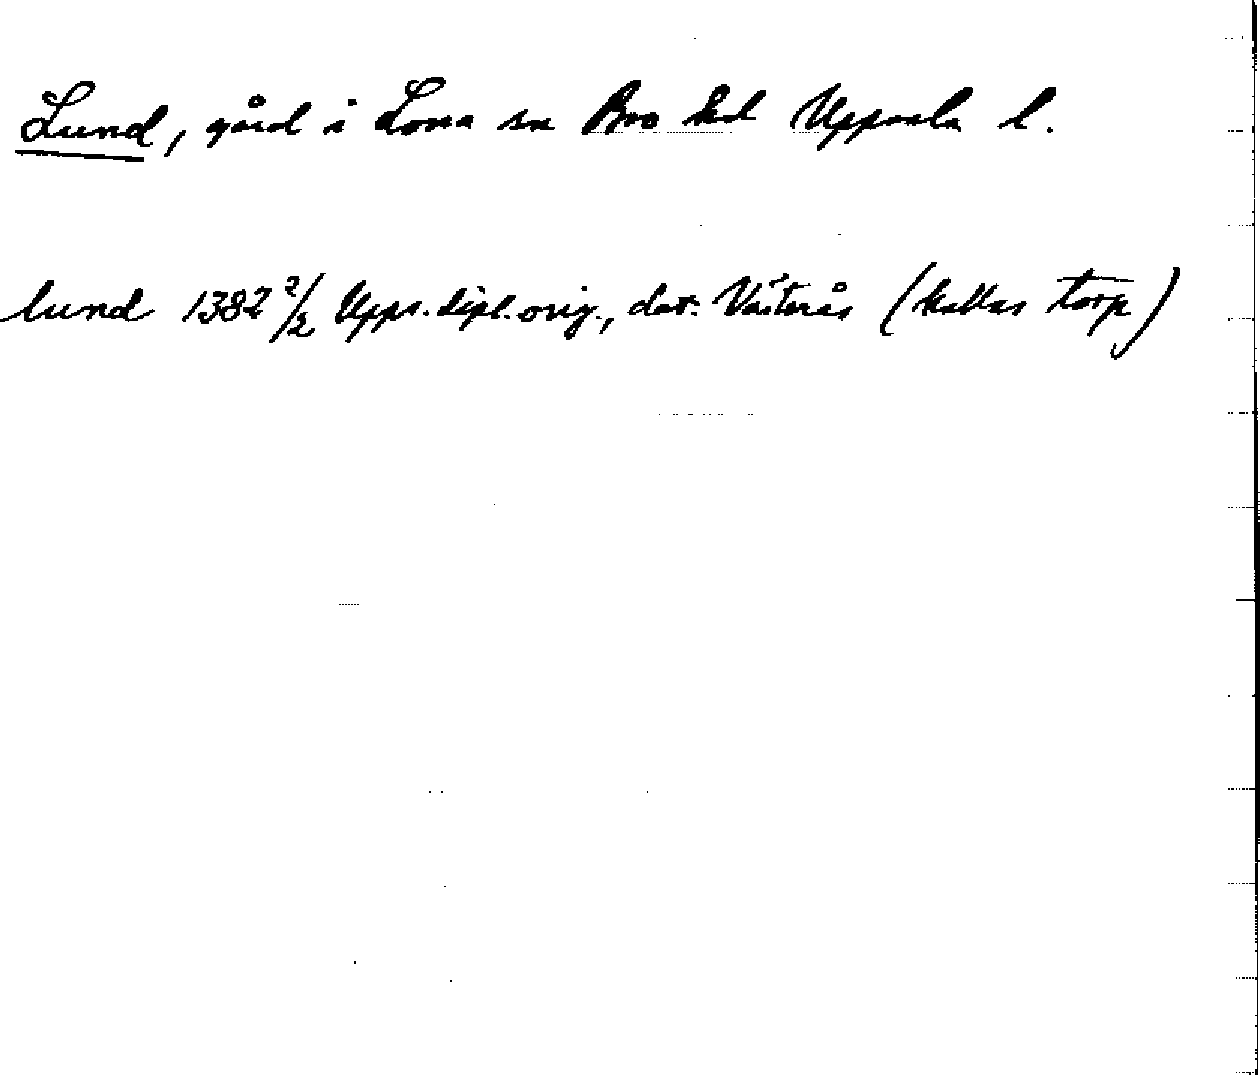 Lund, gård i Lossa sn Bro hd Uppsala l.
lund 1382 2/2 Upps. dipl. orig., dat. Västerås (kallas torp)